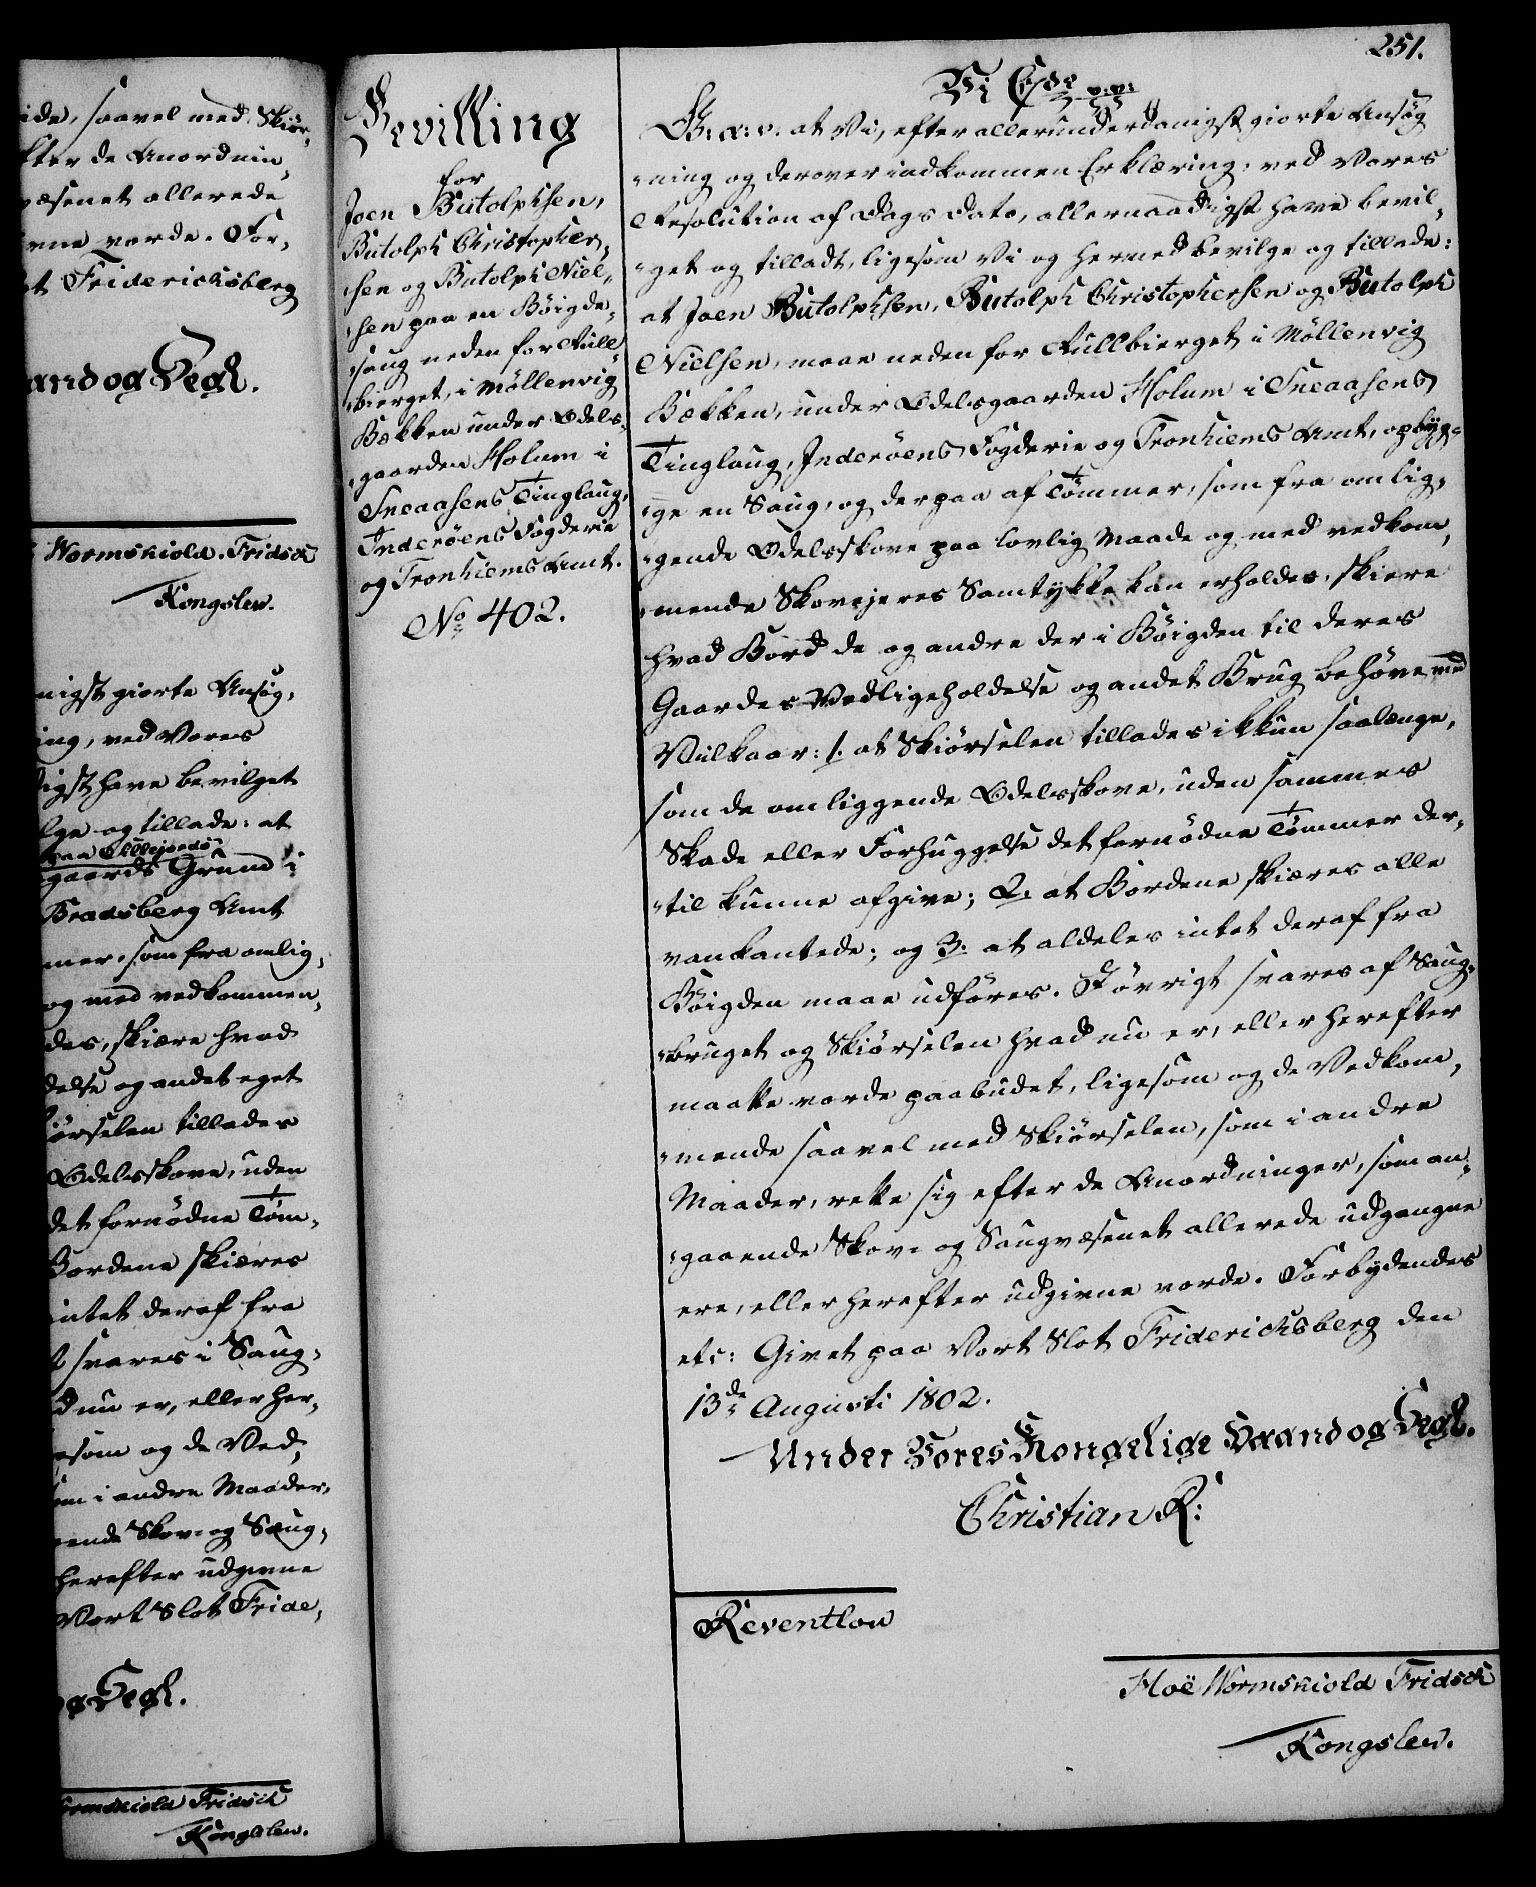 ide, saavel med Skiör-
fter de Anordnin,
væsenet allerede
ivne vorde. For,
t Friderichsberg
and og Segl.
Wormskiold. Fridsch
Kongslew.
nigst giorte Ansøg,
ing, ved Vores
igst have bevilget
lge og tillade: at
gaards Grund i
Bradsberg Amt
mer, som fra omlig,
og med vedkommen,
des, skiære hvad
delse og andet eget
iörselen tillades
Odelsskove, uden
det fornödne Töm,
Bordene skiæres
intet deraf fra
t svares i Saug,
d nu er, eller her,
esom og de Ved,
om i andre Maader,
ende Skov- og Saug,
herefter udgivne
Vort Slot Fride,
og Segl.
ormskiold Fridsch
Kongslew.
Bevilling
for
Joen Butolphsen,
Butolph Christopher,
sen og Butolph Niel,
sen paa en Böigde,
saug neden for Rull,
bierget, i Möllevig
Bækken under Odels,
gaarden Holum i
Sneaasens Tinglaug,
Inderöens Fogderie
og Tronhiems Amt.
No 402.
251.
Vi C: 7de p:p:
G: a: v: at Vi, efter allerunderdanigst giorte Ansøg
ning og derover indkommen Erklæring, ved Vores
Resolution af Dags Dato, allernaadigst have bevil,
get og tilladt, ligesom Vi og hermed bevilge og tillade:
at Joen Butolphsen, Butolph Christophersen og Butolph
Nielsen, maae neden for Rullbierget i Möllenvig
Bækken, under Odelsgaarden Holum i Sneaasens
Tinglaug, Inderöens Fogderie og Tronhiems Amt, opbyg,
ge en Saug, og derpaa af Tömmer, som fra omlig,
gende Odelsskove paa lovlig Maade og med vedkom,
mende Skovejeres Samtykke kan erholdes, skiære
hvad Bord de og andre der i Böigden til deres
Gaardes Vedligeholdelse og andet Brug behöve med
Vilkaar: 1. at Skiörselen tillades ikkun saalænge,
som de omliggende Odelsskove, uden sammes
Skade eller Forhuggelse det fornödne Tömmer der,
til kunne afgive; 2. at Bordene skiæres alle
vankantede; og 3. at aldeles intet deraf fra
Böigden maae udföres. I övrigt svares af Saug,
bruget og Skiörselen hvad nu er, eller herefter
maatte vorde paabudet, ligesom og de Vedkom,
mende saavel med Skiörselen, som i andre
Maader, rette sig efter de Anordninger, som an,
gaaende Skov- og Saugvæsenet allerede udgangne
ere, eller herefter udgivne vorde. Forbydendes
etc: Givet paa Vort Slot Friderichsberg den
13de Augusti 1802.
Under Vores Kongelige Haand og Segl.
Christian R:
Reventlow
Hoë Wormskiold Fridsch
Kongslew.